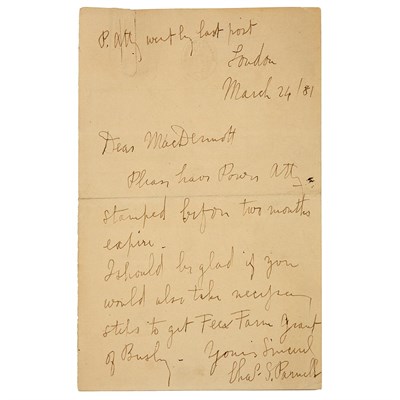 P. Atty went by last post
London
March 24/81
Dear MacDermott
Please have Powers Atty
stamped before two months
expire.
I should be glad if you
would also take necessary
steps to get Fee Farm Grant
of Busby – Yours Sincerely
Chas. S. Parnell